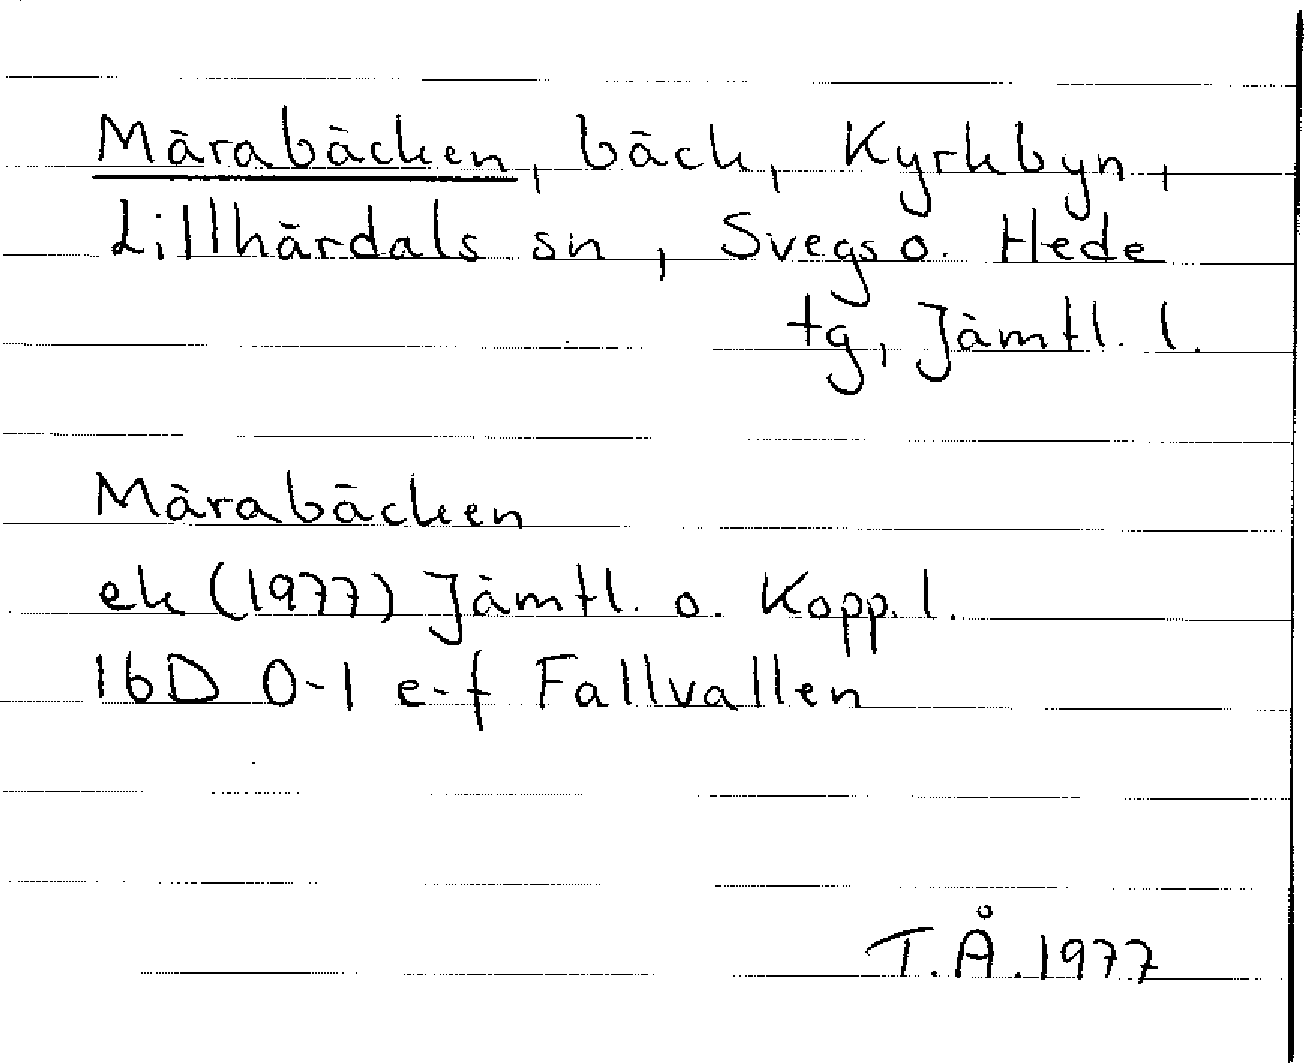 Märabäcken, bäck, Kyrkbyn,
Lillhärdals sn, Svegs o. Hede
tg, Jämtl. l.
Märabäcken
ek (1977) Jämtl. o. Kopp. l.
16D 0-1 e-f Fallvallen
T.Å. 1977